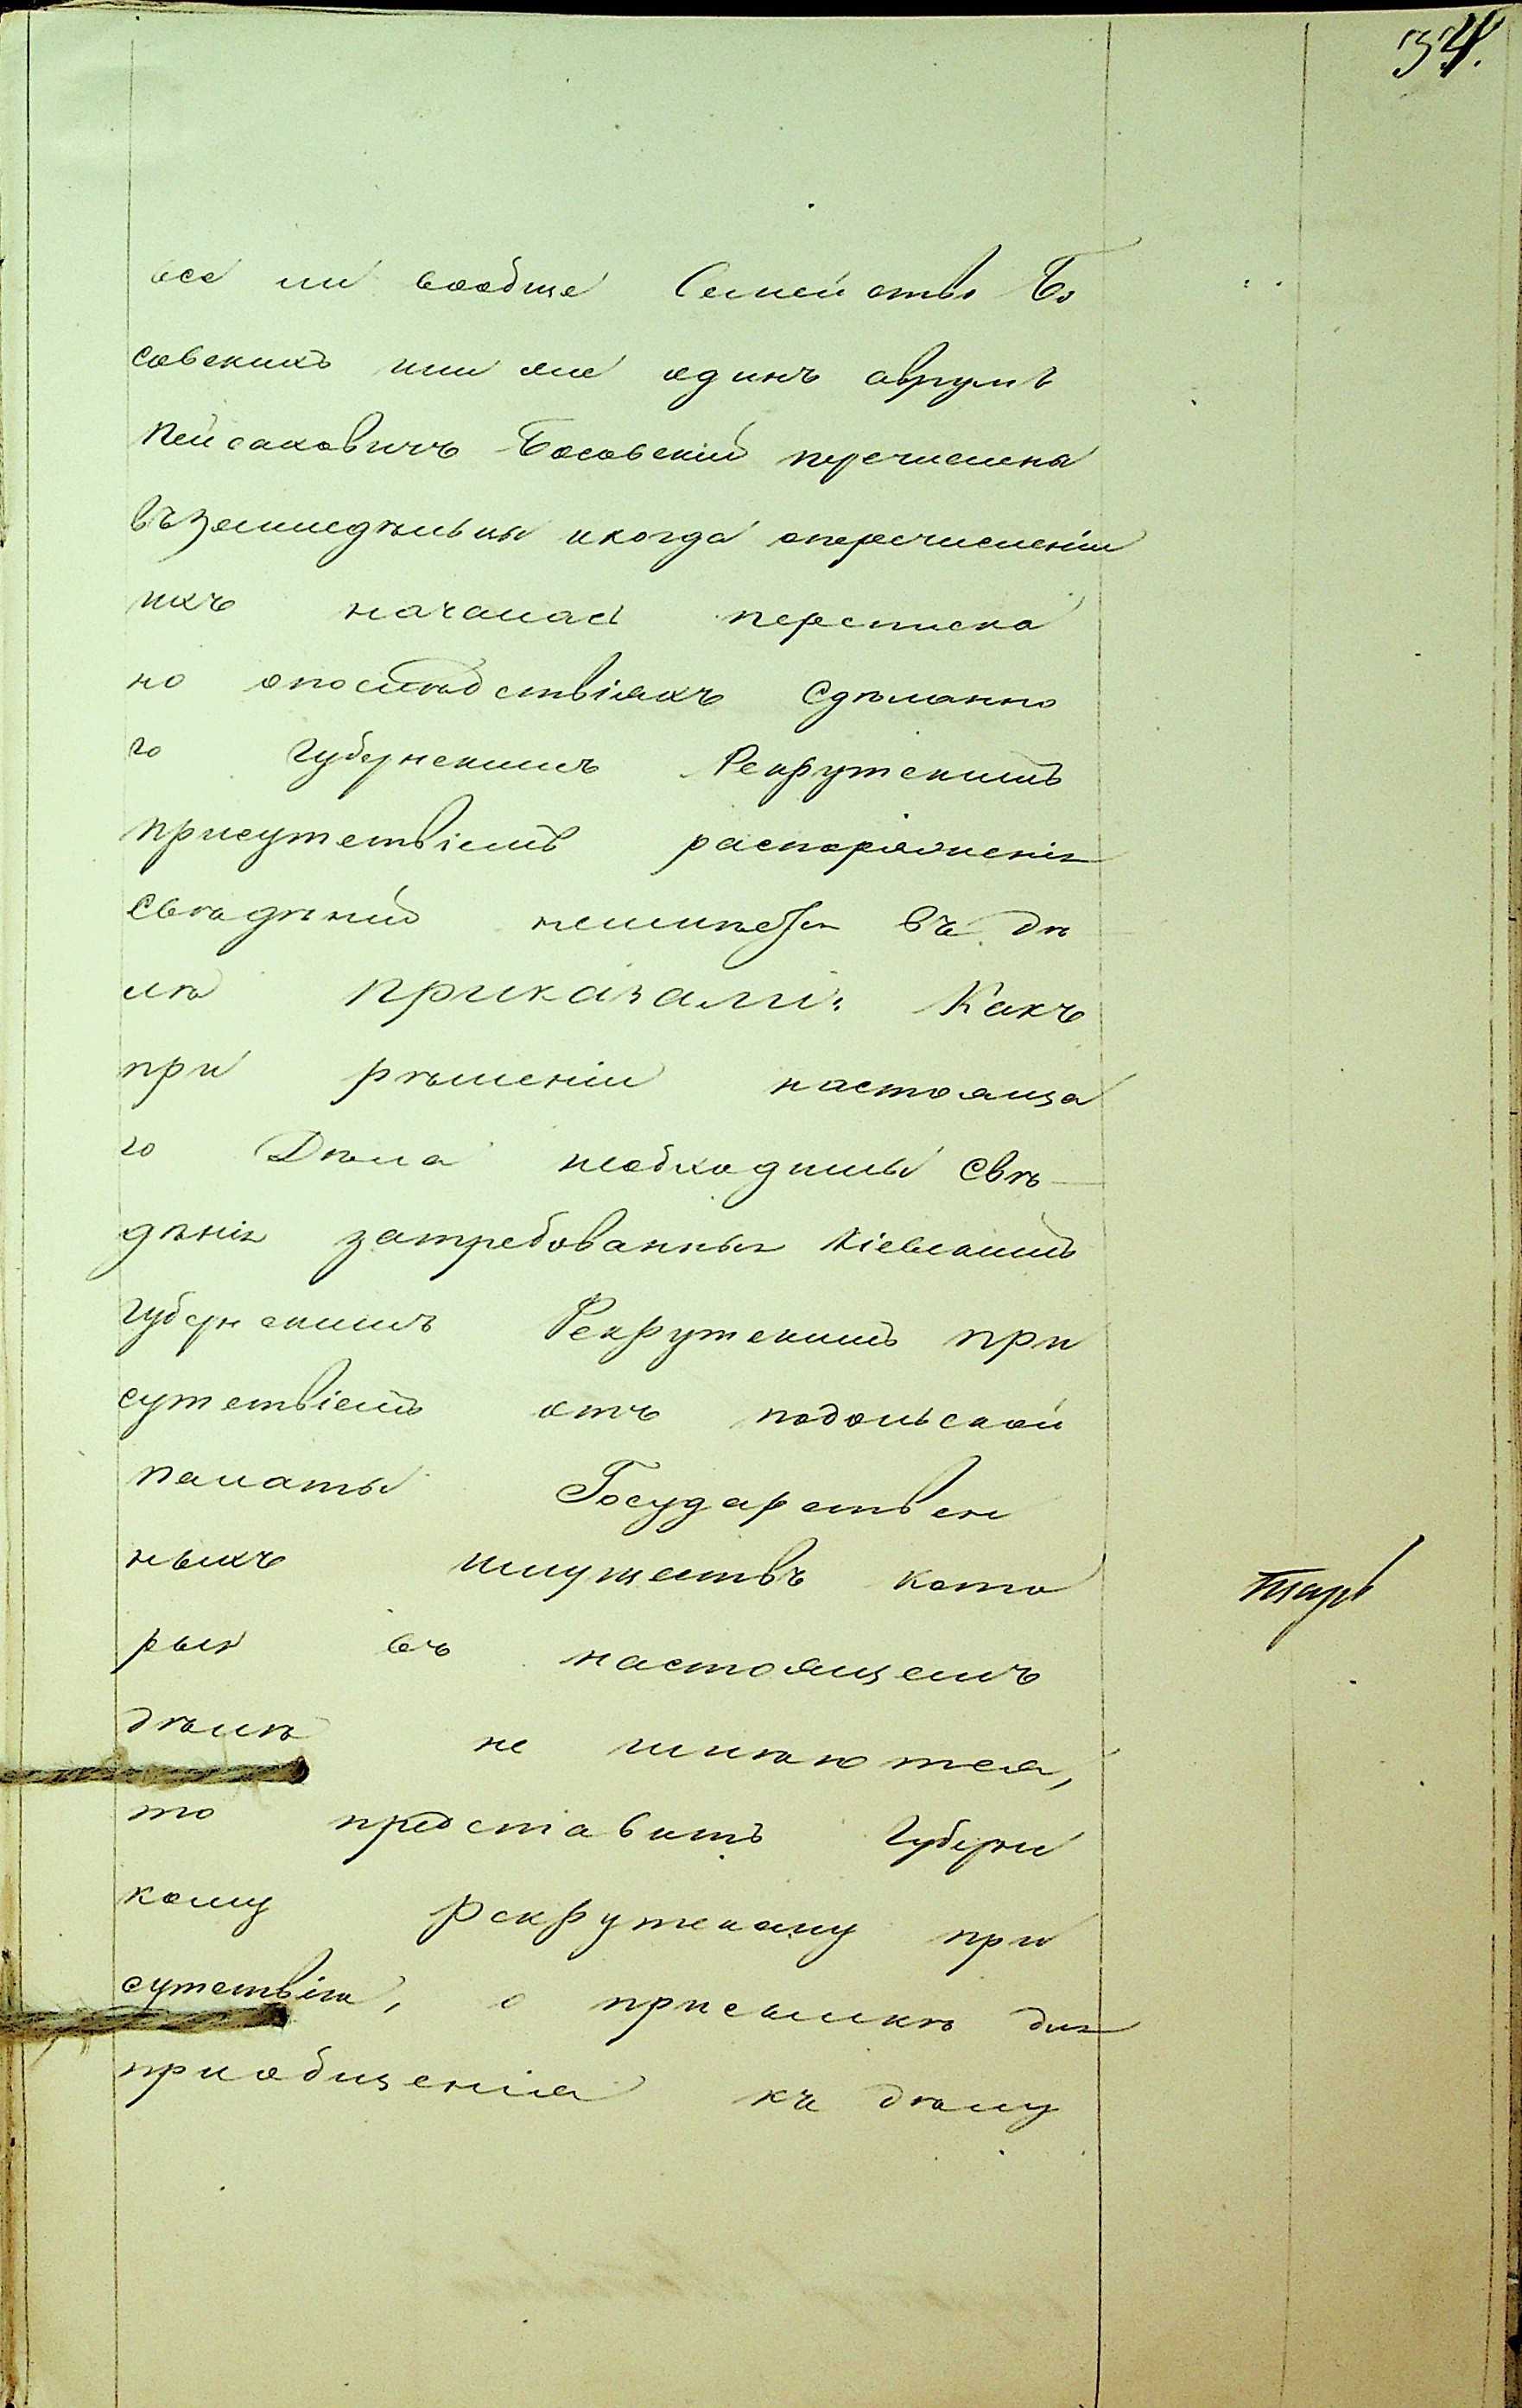 34.
все ли вообще Семейство Бо
совскихъ или же одинъ аврумъ
Пейсаховичъ Босовскій перечислены
въ земледѣльцы и когда о перечисленіи
ихъ началась переписка
но о послѣдствіяхъ сдѣланно
го Губернскимъ Рекрутскимъ
присутствіемъ распоряженія
свѣдѣній неимѣется въ дѣ
лѣ приказали: Какъ
при рѣшеніи настояща
го Дѣла необходимы свѣ
дѣнія затребованныя Кіевскимъ
Губернскимъ Рекрутскимъ при
сутствіемъ отъ подольской
палаты Государствен
ныхъ имуществъ кото
рыя въ настоящемъ
дѣлѣ не имѣются,
то предоставить Губернс
кому Рекрутскому при
сутствію, о присылкѣ для
приобщенія къ дѣлу